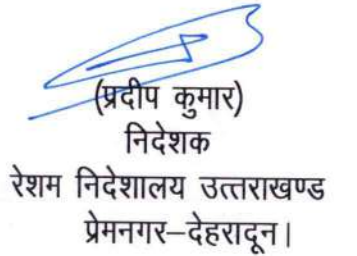 (प्रदीप कुमार)
निदेशक
रेशम निदेशालय उत्तराखण्ड
प्रेमनगर–देहरादून।